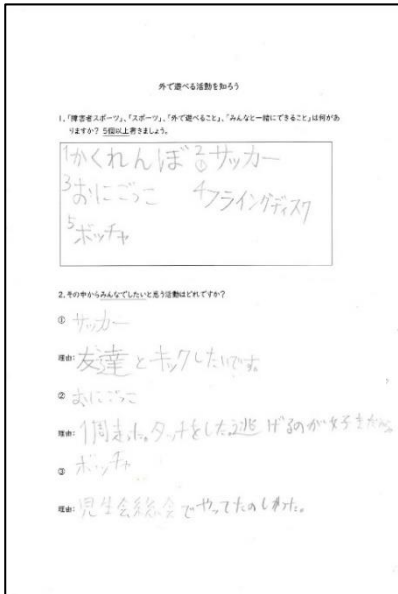 外で遊べる活動を知ろう
1、「障害者スポーツ」、「スポーツ」、「外で遊べること」、「みんなと一緒にできること」は何があ
りますか? 5個以上書きましょう。
1かくれんぼ 2①サッカー
3おにごっこ 4フライングディスク
5ボッチャ
2、その中からみんなでしたいと思う活動はどれですか?
① サッカー
理由: 友達とキックしたいです。
② おにごっこ
理由: タッチをした逃げるのが好きだから
③ ボッチャ
理由: 児生会総会でやってたのしかった。